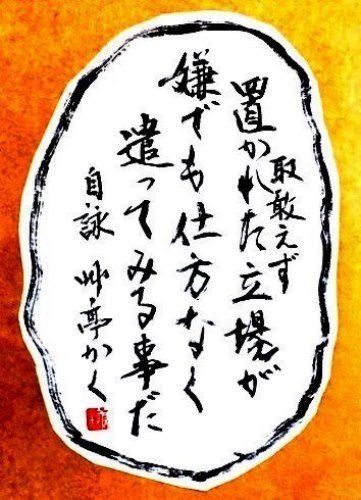 取敢えず
置かれた立場が
嫌でも仕方なく
遣ってみる事だ
自詠 艸亭かく